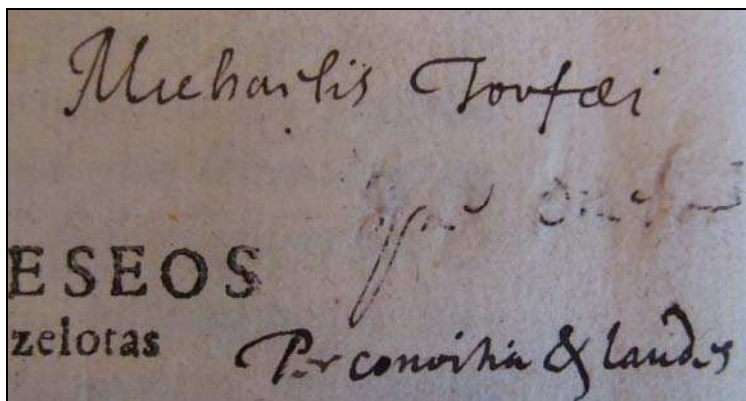 Michaelis Toufæi
ESEOS
zelotas
Per convitia & laudes